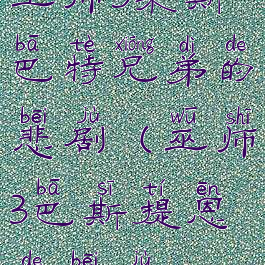 bā tè xiōng dì de
巴特兄弟的
bēi jù wū shī
悲剧（巫师
bā sī tí ēn
3巴斯提恩
de bēi jù